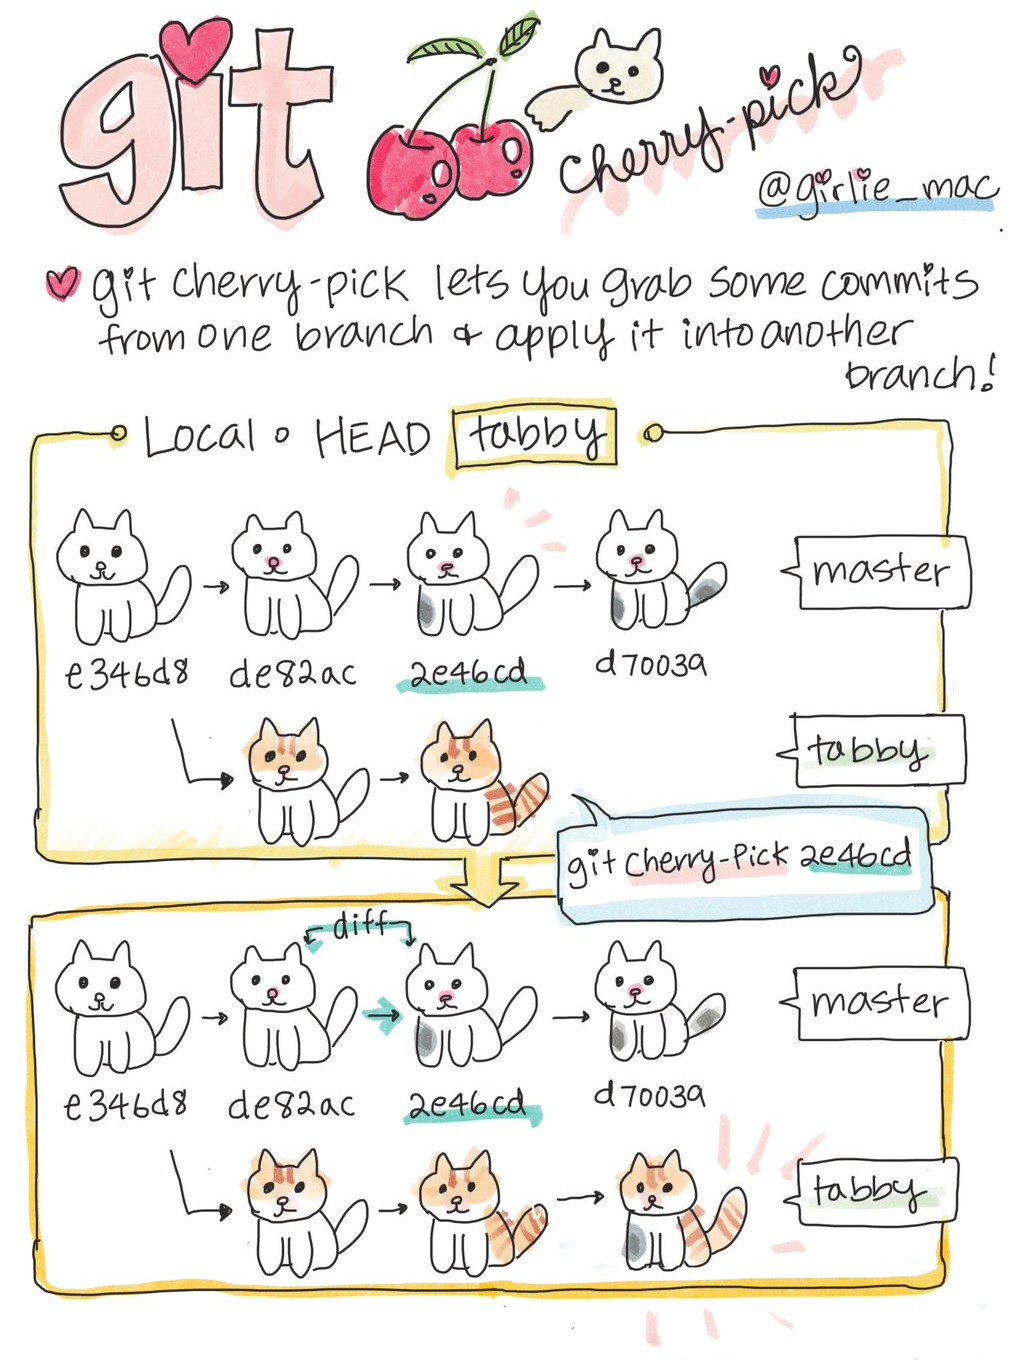 git
cherry-pick
@girlie_mac
git cherry-pick lets you grab some commits
from one branch & apply it into another
branch!
Local • HEAD tabby
master
e346d8 de82ac 2e46cd d7003a
tabby
git cherry-pick 2e46cd
diff
master
e346d8 de82ac 2e46cd d7003a
tabby